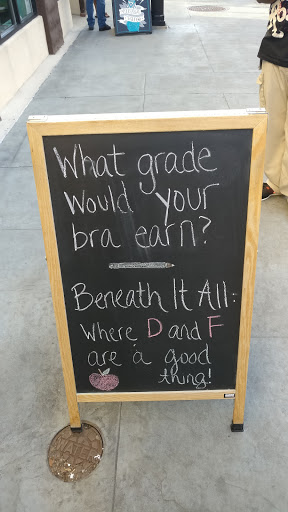 What grade
Would your
bra earn?
Beneath It All:
Where D and F
are a good
thing!